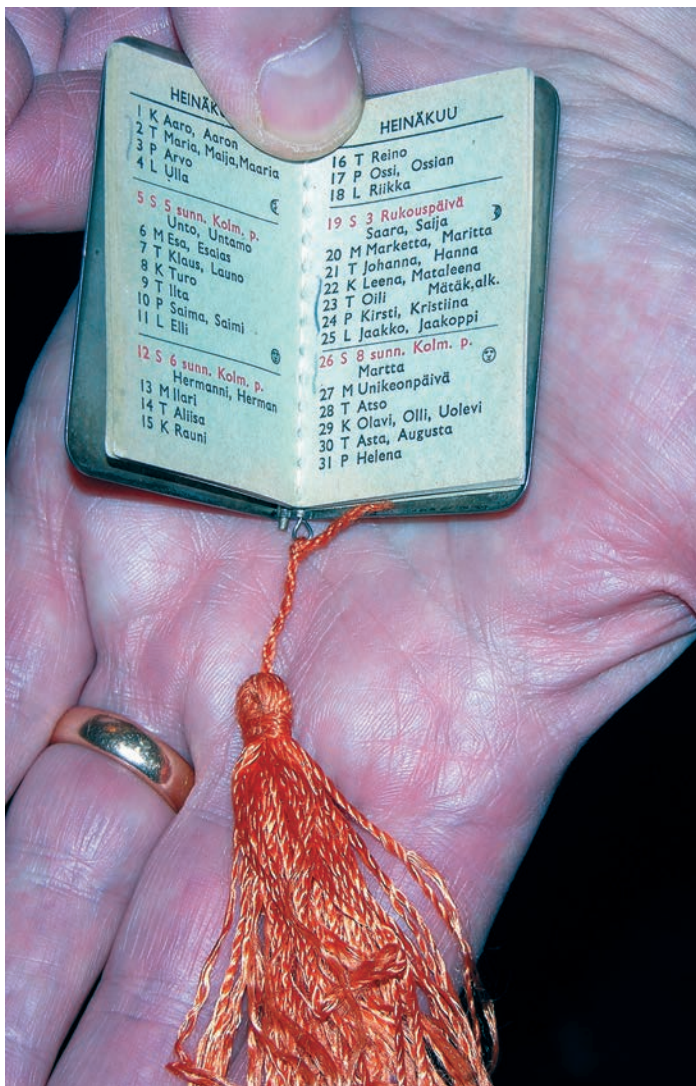 HEINÄK
1 K Aaro, Aaron
2 T Maria, Maija, Maaria
3 P Arvo
4 L Ulla
5 S 5 sunn. Kolm. p.
Unto, Untamo
6 M Esa, Esaias
7 T Klaus, Launo
8 K Turo
9 T Ilta
10 P Saima, Saimi
11 L Elli
12 S 6 sunn. Kolm. p.
Hermanni, Herman
13 M Ilari
14 T Aliisa
15 K Rauni
HEINÄKUU
16 T Reino
17 P Ossi, Ossian
18 L Riikka
19 S 3 Rukouspäivä
Saara, Saija
20 M Marketta, Maritta
21 T Johanna, Hanna
22 K Leena, Mataleena
23 T Oili Mätäk,alk.
24 P Kirsti, Kristiina
25 L Jaakko, Jaakoppi
26 S 8 sunn. Kolm. p.
Martta
27 M Unikeonpäivä
28 T Atso
29 K Olavi, Olli, Uolevi
30 T Asta, Augusta
31 P Helena